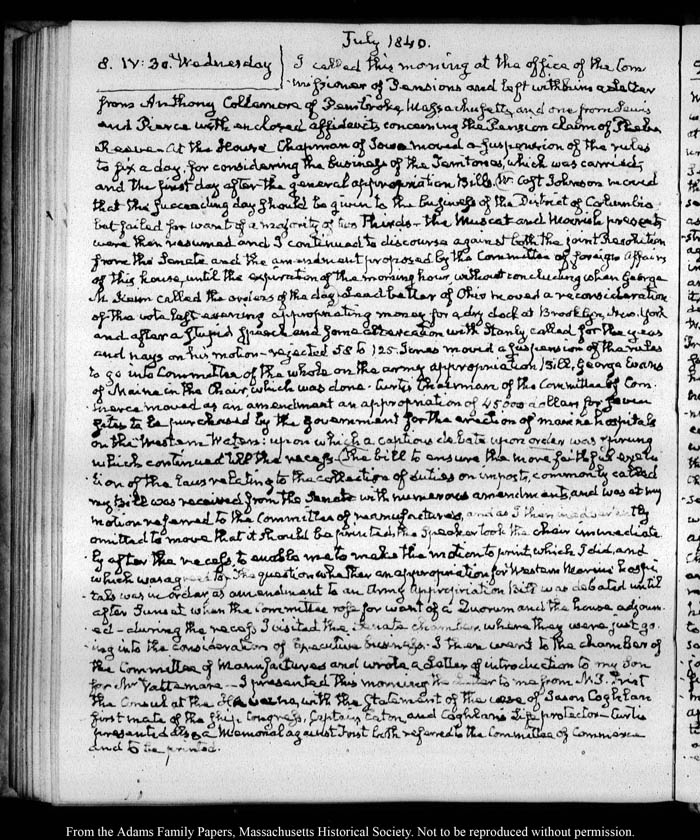 July 1840.
8. IV: 30. Wednesday I called this morning at the office of the Com
missioner of Pensions and left with him a Letter
from Anthony Collamore of Pembroke Massachusetts, and one from Lewis
and Pierce with enclosed affidavits concerning the Pension claim of Phebe
Reeve. At the House Chapman of Iowa moved a suspension of the rules
to fix a day, for considering the business of the Territories, which was carried,
and the first day after the general appropriation Bills. Wm Cost Johnson moved
that the succeeding day should be given to the business of the District of Columbia
but failed for want of a majority of two Thirds - the Muscat and Moorish presents
were then resumed and I continued to discourse against both the joint Resolution
from the Senate and the amendment proposed by the Committee of foreign Affairs
of this house, until the expiration of the morning hour, without concluding when George
M. Keim called the orders of the day. Leadbetter of Ohio moved a reconsideration
of the vote last evening appropriating money for a dry dock at Brooklyn, New-York
and after a stupid speech and some altercation with Stanly called for the yeas
and nays on his motion - rejected 58 to 125. Jones moved a suspension of the rules
to go into Committee of the whole on the army appropriation Bill, George Evans
of Maine in the Chair, which was done. Curtis Chairman of the Committee of Com
merce moved as an amendment an appropriation of 45000 dollars for seven
sites to be purchased by the government for the erection of marine hospitals
on the Western Waters: upon which a captious debate upon order was sprung
which continued till the recess. The bill to ensure the more faithful execu
tion of the Laws relating to the collection of duties on imposts, commonly called
my Bill was received from the Senate with numerous amendments, and was at my
motion referred to the Committee of manufactures, and as I then inadvertently
omitted to move that it should be printed, the Speaker took the chair immediate
ly after the recess, to enable me to make the motion to print, which I did, and
which was agreed to. The question whether an appropriation for Western Marine hospi
tals was in order as amendment to an Army Appropriation Bill was debated until
after Sunset, when the Committee rose for want of a Quorum and the house adjourn
ed - during the recess I visited the Senate chamber, where they were just go
ing into the consideration of Executive business. I then went to the chamber of
the Committee of Manufactures and wrote a Letter of introduction to my Son
for Mr Vattemare - I presented this morning the Letter to me from N. P. Trist
the Consul at the Havanna, with the Statement of the case of Jason Coghlan
first mate of the Ship Congress, Captain Eaton, and Coghlan's protector - Curtis
presented also a Memorial against Trist both referred to the Committee of Commerce
and to be printed.
From the Adams Family Papers, Massachusetts Historical Society. Not to be reproduced without permission.